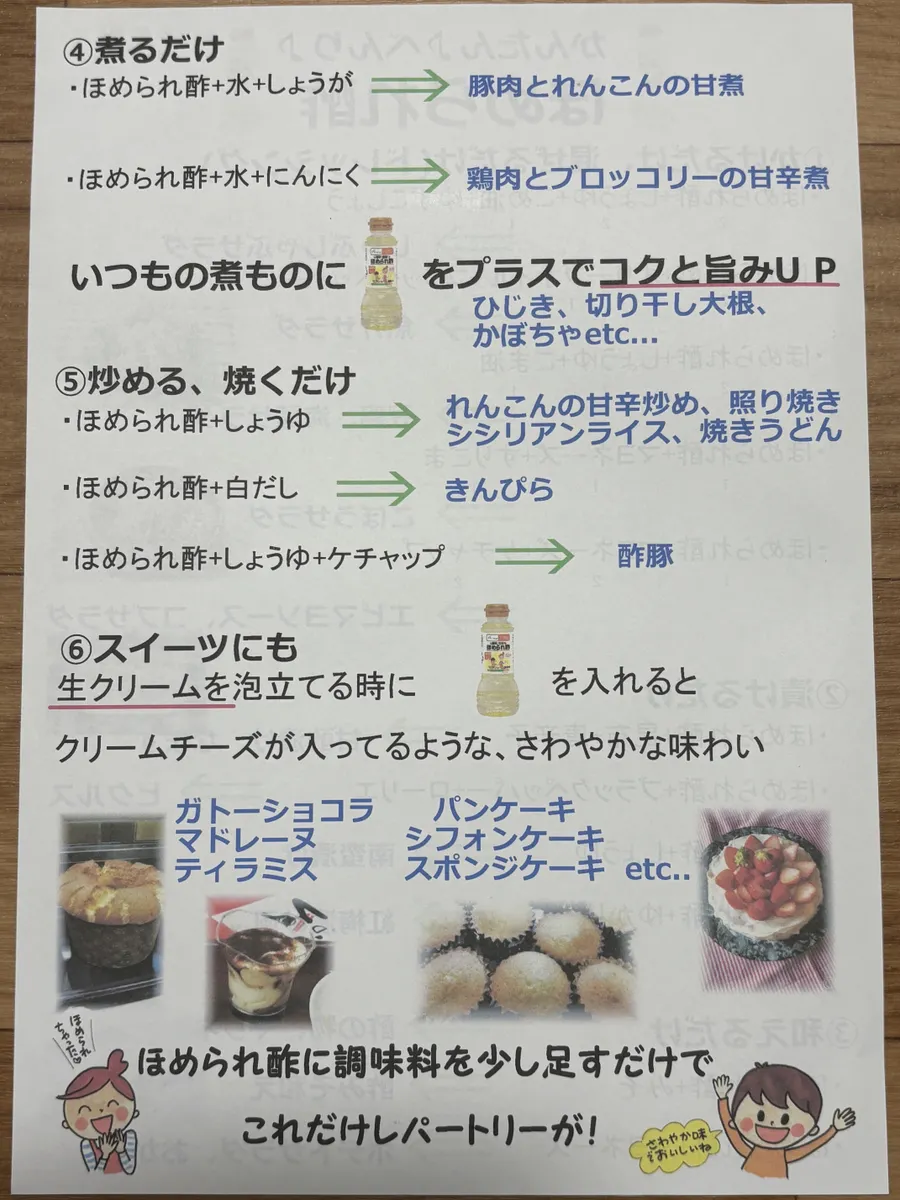 ④煮るだけ
・ほめられ酢+水+しょうが
豚肉とれんこんの甘煮
・ほめられ酢+水+にんにく
鶏肉とブロッコリーの甘辛煮
いつもの煮ものに をプラスでコクと旨みUP
ひじき、切り干し大根、
かぼちゃetc...
⑤炒める、焼くだけ
・ほめられ酢+しょうゆ
れんこんの甘辛炒め、照り焼き
シシリアンライス、焼きうどん
・ほめられ酢+白だし
きんぴら
・ほめられ酢+しょうゆ+ケチャップ
酢豚
⑥スイーツにも
生クリームを泡立てる時に を入れると
クリームチーズが入ってるような、さわやかな味わい
ガトーショコラ
マドレーヌ
ティラミス
パンケーキ
シフォンケーキ
スポンジケーキ etc..
ほめられ
ちゃった
ほめられ酢に調味料を少し足すだけで
これだけレパートリーが!
さわやか味
おいしいね